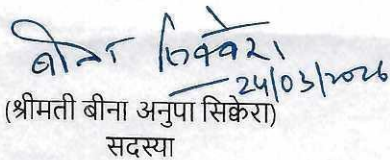 बीना सिक्वेरा
24/03/2026
(श्रीमती बीना अनुपा सिक्वेरा)
सदस्या